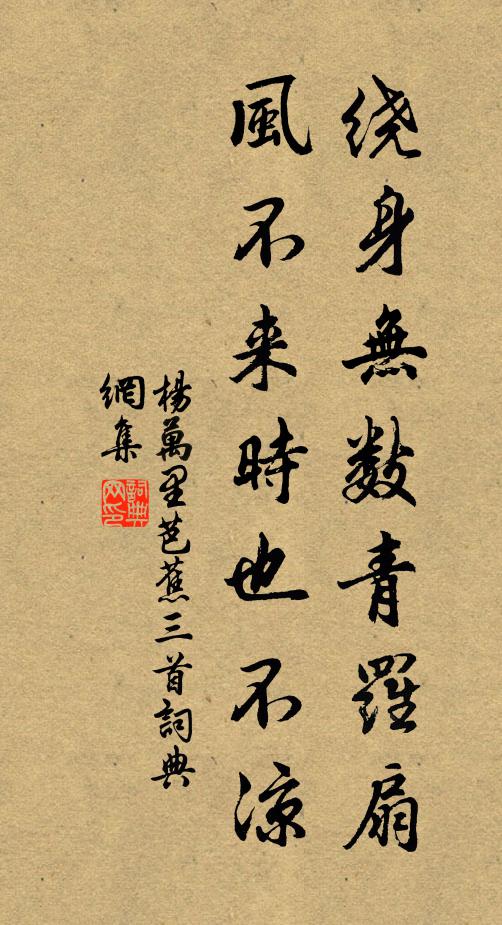 绕身無数青羅扇
風不来時也不涼
楊萬里芭蕉三首詞典
網集
詞典
网印